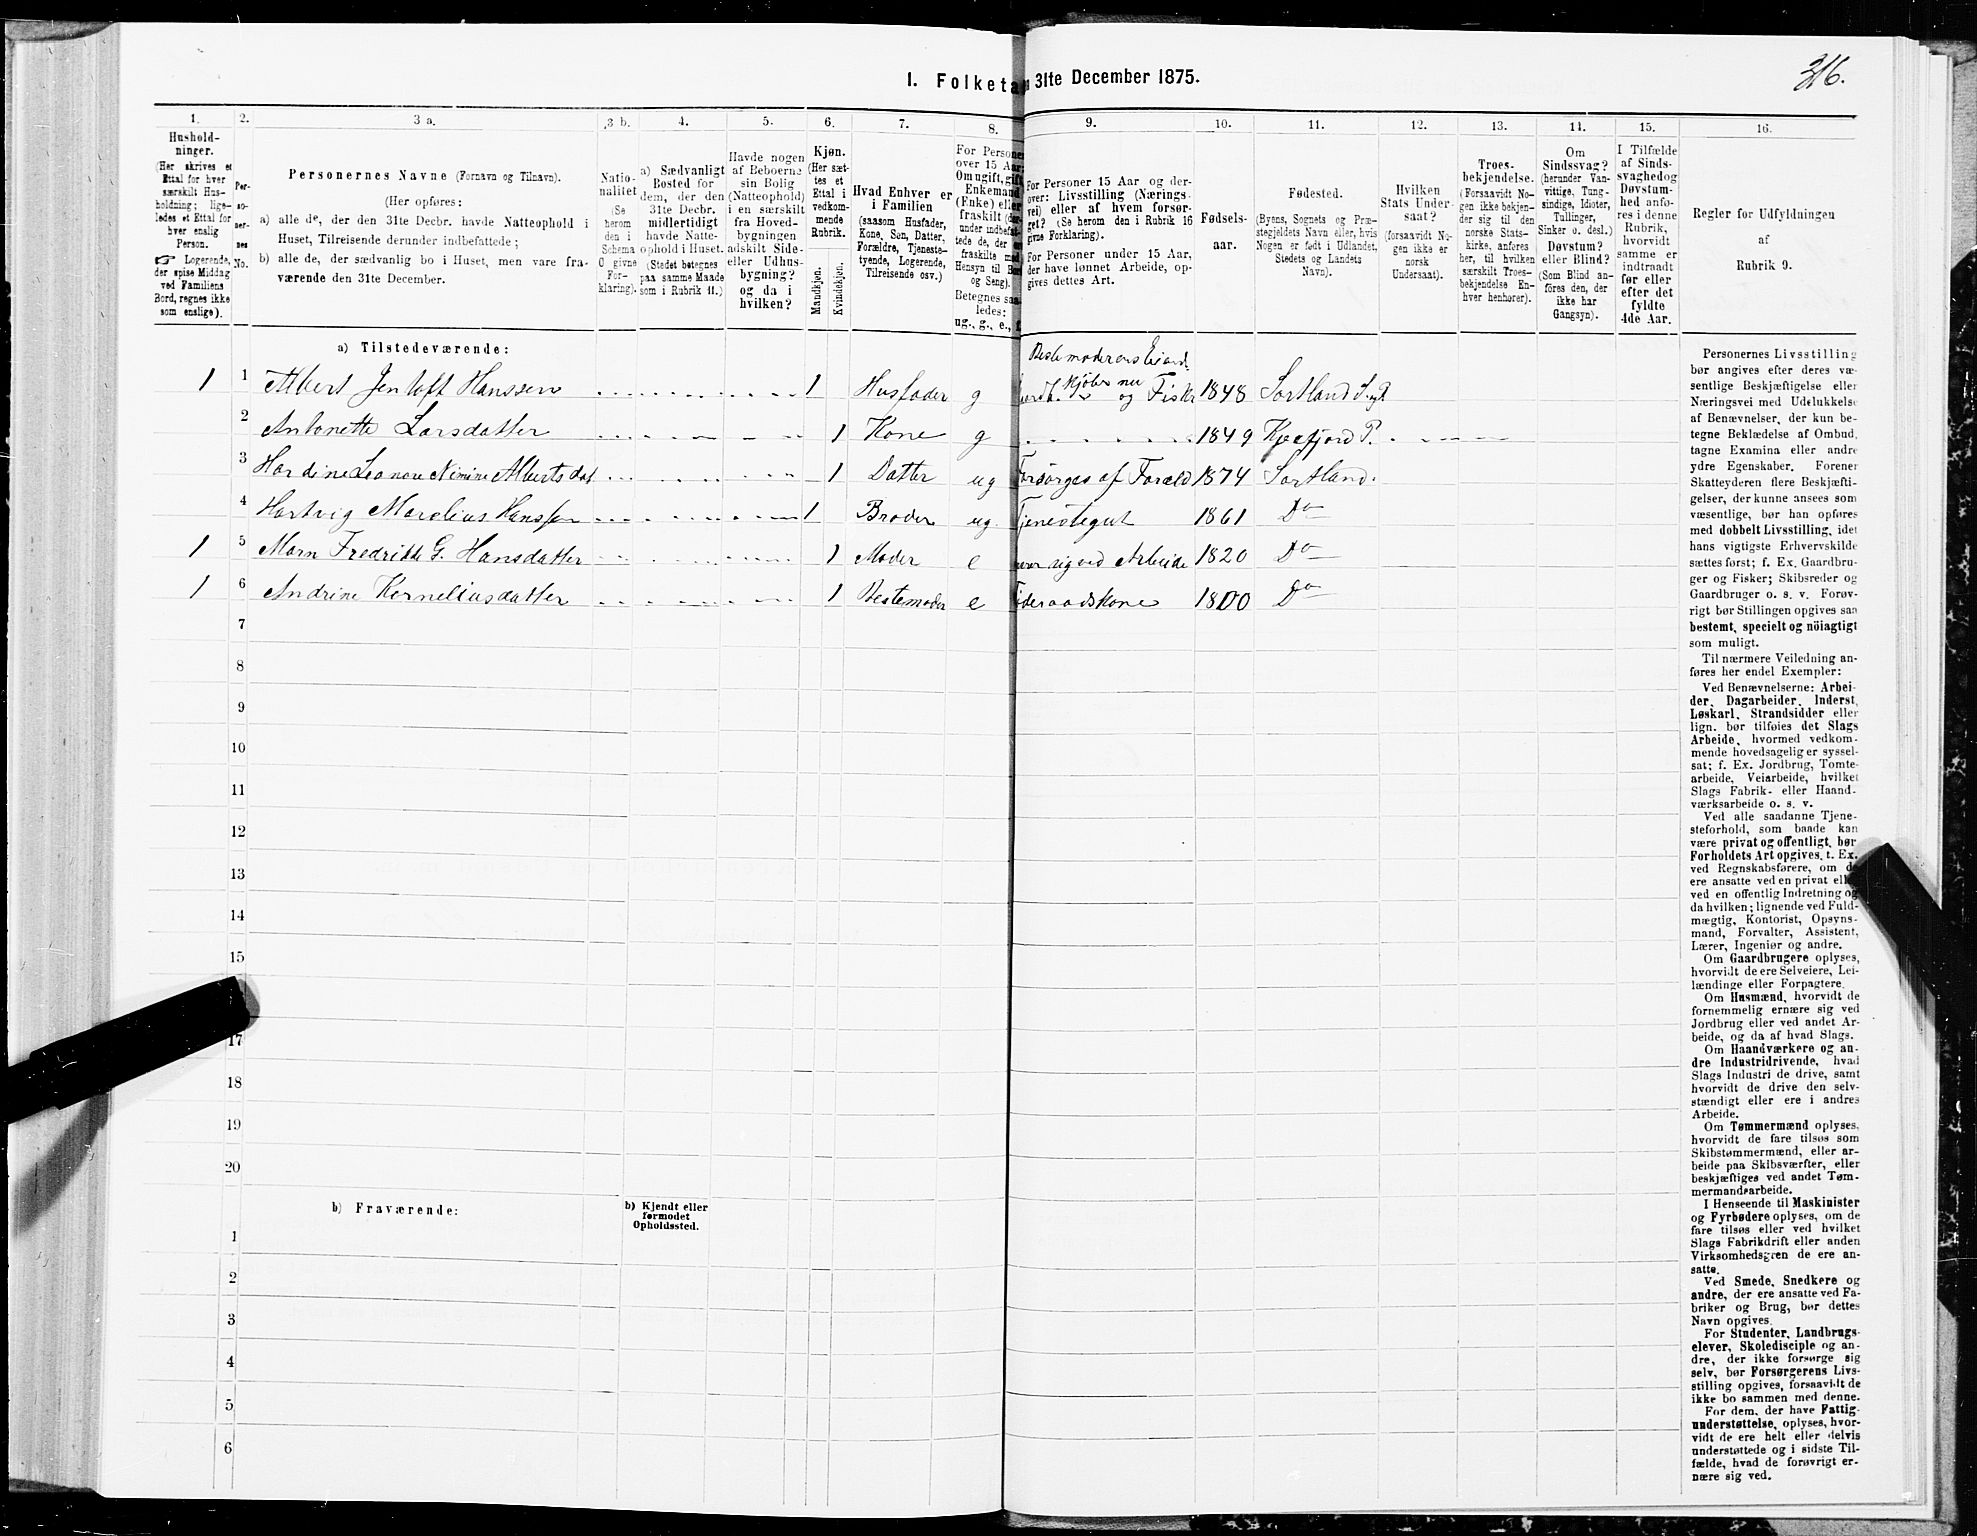 316.
1. Folketa 31te December 1875.
1. 2. 3 a. 3 b. 4. 5. 6. 7. 8. 9. 10. 11. 12. 13. 14. 15. 16.
Hushold-
ninger.
(Her skrives et
Ettal for hver
særskilt Hus-
holdning; lige-
ledes et Ettal for
hver enslig
Person.
☞ Logerende,
der spise Middag
ved Familiens
Bord, regnes ikke
som enslige).
Per-
so-
ner-
nes
No.
Personernes Navne (Fornavn og Tilnavn).
(Her opføres:
a) alle de, der den 31te Decbr. havde Natteophold i
Huset, Tilreisende derunder indbefattede;
b) alle de, der sædvanlig bo i Huset, men vare fra-
værende den 31te December.
Natio-
nalitet
(Se
herom
den i
Schema
O givne
For-
klaring).
a) Sædvanligt
Bosted for
dem, der den
31te Decbr.
midlertidigt
havde Natte-
ophold i Huset.
(Stedet betegnes
paa samme Maade
som i Rubrik 11.)
Havde nogen
af Beboerne
sin Bolig
(Natteophold)
i en særskilt
fra Hoved-
bygningen
adskilt Side-
eller Udhus-
bygning?
og da i
hvilken?
Kjøn.
(Her sæt-
tes et
Ettal i
vedkom-
mende
Rubrik.
Mandkjøn.
Kvindekjøn.
Hvad Enhver er
i Familien
(saasom Husfader,
Kone, Søn, Datter,
Forældre, Tjeneste-
tyende, Logerende,
Tilreisende osv.)
For Personer
over 15 Aar
Om ugift, gift
Enkemand
(Enke) eller
fraskilt (der-
under indbefat-
tede de, der er
fraskilte med
Hensyn til Bord
og Seng).
Betegnes saa-
ledes:
ug., g., e., f.
For Personer 15 Aar og der-
over: Livsstilling (Nærings-
vei) eller af hvem forsør-
get? (Se herom den i Rubrik 16
givne Forklaring).
For Personer under 15 Aar,
der have lønnet Arbeide, op-
gives dettes Art.
Fødsels-
aar.
Fødested.
(Byens, Sognets og Præ-
stegjeldets Navn eller, hvis
Nogen er født i Udlandet,
Stedets og Landets
Navn).
Hvilken
Stats Under-
saat?
(forsaavidt No-
gen ikke er
norsk
Undersaat).
Troes-
bekjendelse.
(Forsaavidt No-
gen ikke bekjen-
der sig til den
norske Stats-
kirke, anføres
her, til hvilken
særskilt Troes-
bekjendelse En-
hver henhører).
Om
Sindssvag?
(herunder Van-
vittige, Tung-
sindige, Idioter,
Tullinger,
Sinker o. desl.)
Døvstum?
eller Blind?
(Som Blind an-
føres den, der
ikke har
Gangsyn).
I Tilfælde
af Sinds-
svaghed og
Døvstum-
hed anfø-
res i denne
Rubrik,
hvorvidt
samme er
indtraadt
før eller
efter det
fyldte
4de Aar.
Regler for Udfyldningen
af
Rubrik 9.
a) Tilstedeværende:
Bestemoderens
Kjøber nu
1 1 Albert Jentoft Hanssen 1 Husfader g og Fisker 1848 Sortland S. og P.
2 Antonette Larsdatter 1 Kone g 1849 P.
3 Hardine Leonore Nimine Albertsdat 1 Datter ug Forsørges af Foræld 1874 Sortland.
4 Hartvig Marelius Hanssen 1 Broder ug. Tjenestegut 1861 Do
1 5 Maren Fredrikke G. Hansdatter 1 Moder e nærer sig ved Arbeide 1820 Do
1 6 Andrine Korneliusdatter 1 Bestemoder e Føderaadskone 1800 Do
7
8
9
10
11
12
13
14
15
17
18
19
20
b) Fraværende:
b) Kjendt eller
formodet
Opholdssted.
1
2
3
4
5
6
Personernes Livsstilling
bør angives efter deres væ-
sentlige Beskjæftigelse eller
Næringsvei med Udelukkelse
af Benævnelser, der kun be-
tegne Beklædelse af Ombud,
tagne Examina eller andre
ydre Egenskaber. Forener
Skatteyderen flere Beskjæfti-
gelser, der kunne ansees som
væsentlige, bør han opføres
med dobbelt Livsstilling, idet
hans vigtigste Erhvervskilde
sættes først; f. Ex. Gaardbru-
ger og Fisker; Skibsreder og
Gaardbruger o. s. v. Forøv-
rigt bør Stillingen opgives saa
bestemt, specielt og nöiagtigt
som muligt.
Til nærmere Veiledning an-
føres her endel Exempler:
Ved Benævnelserne: Arbei-
der, Dagarbeider, Inderst,
Løskarl, Strandsidder eller
lign. bør tilføies det Slags
Arbeide, hvormed vedkom-
mende hovedsagelig er syssel-
sat; f. Ex. Jordbrug, Tomte-
arbeide, Veiarbeide, hvilket
Slags Fabrik- eller Haand-
værksarbeide o. s. v.
Ved alle saadanne Tjene-
steforhold, som baade kan
være privat og offentligt, bør
Forholdets Art opgives, t. Ex.
ved Regnskabsførere, om de
ere ansatte ved en privat eller
ved en offentlig Indretning og
da hvilken; lignende ved Fuld-
mægtig, Kontorist, Opsyns-
mand, Forvalter, Assistent,
Lærer, Ingeniør og andre.
Om Gaardbrugere oplyses,
hvorvidt de ere Selveiere, Lei-
lændinge eller Forpagtere.
Om Husmænd, hvorvidt de
fornemmelig ernære sig ved
Jordbrug eller ved andet Ar-
beide, og da af hvad Slags.
Om Haandværkere og an-
dre Industridrivende, hvad
Slags Industri de drive, samt
hvorvidt de drive den selv-
stændigt eller ere i andres
Arbeide.
Om Tømmermænd oplyses,
hvorvidt de fare tilsøs som
Skibstømmermænd, eller ar-
beide paa Skibsværfter, eller
beskjæftiges ved andet Tøm-
mermandsarbeide.
I Henseende til Maskinister
og Fyrbødere oplyses, om de
fare tilsøs eller ved hvilket
Slags Fabrikdrift eller anden
Virksomhedsgren de ere an-
satte.
Ved Smede, Snedkere og
andre, der ere ansatte ved Fa-
briker og Brug, bør dettes
Navn opgives.
For Studenter, Landbrugs-
elever, Skoledisciple og an-
dre, der ikke forsørge sig
selv, bør Forsørgerens Livs-
stilling opgives, forsaavidt de
ikke bo sammen med denne.
For dem, der have Fattig-
understøttelse, oplyses, hvor-
vidt de ere helt eller delvis
understøttede og i sidste Til-
fælde, hvad de forøvrigt er-
nære sig ved.